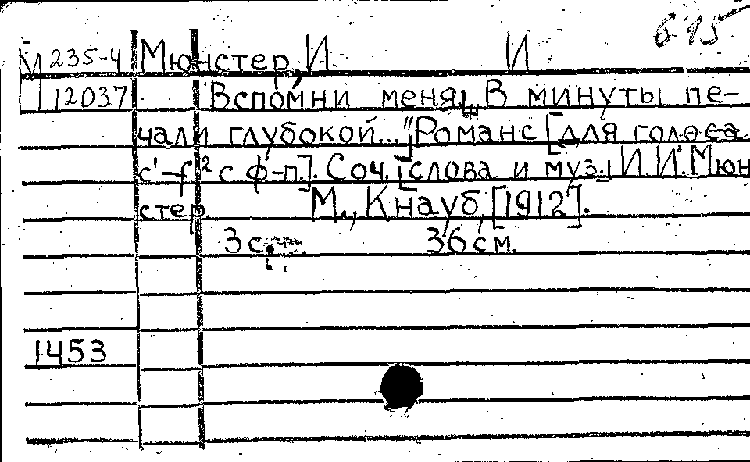 695
М 235-4 Мюнстер, И. И.
12037 Вспомни меня! „В минуты пе-
чали глубокой..." Романс [для голоса
c¹-f² с ф-п.]. Соч. [слова и муз.] И. И. Мюн
стер. М., Кнауб, [1912].
3 стр. 36 см.
1453